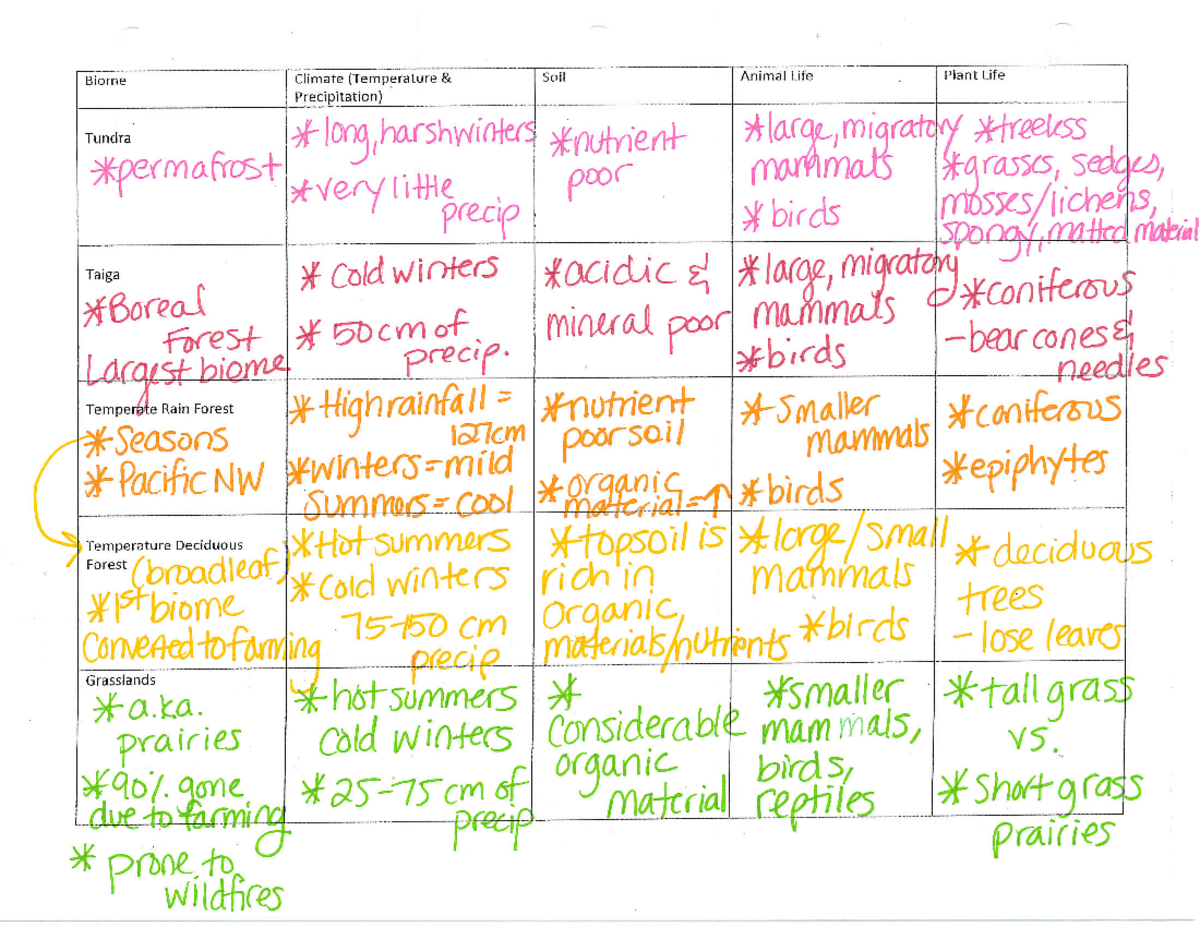 Biome
Climate (Temperature &
Precipitation)
Soil
Animal Life
Plant Life
Tundra
*permafrost
*long, harsh winters
*very little
precip
*nutrient
poor
*large, migratory
mammals
*birds
*treeless
*grasses, sedges,
mosses/lichens,
spongy, matted material
Taiga
*Boreal
Forest
Largest biome
*Cold winters
*50 cm of
precip.
*acidic &
mineral poor
*large, migratory
mammals
*birds
*coniferous
-bear cones &
needles
Temperate Rain Forest
*Seasons
*Pacific NW
*High rainfall =
127cm
*winters=mild
Summers=cool
*nutrient
poor soil
*organic
material=↑
*Smaller
mammals
*birds
*coniferous
*epiphytes
Temperature Deciduous
Forest (broadleaf)
*1st biome
Converted to farming
*Hot summers
*Cold winters
75-150 cm
precip
*topsoil is
rich in
organic,
materials/nutrients
*large/small
mammals
*birds
*deciduous
trees
-lose leaves
Grasslands
*a.k.a.
prairies
*90% gone
due to farming
*prone to
wildfires
*hot summers
cold winters
*25-75 cm of
precip
*
Considerable
organic
material
*smaller
mammals,
birds,
reptiles
*tall grass
vs.
*Short grass
prairies